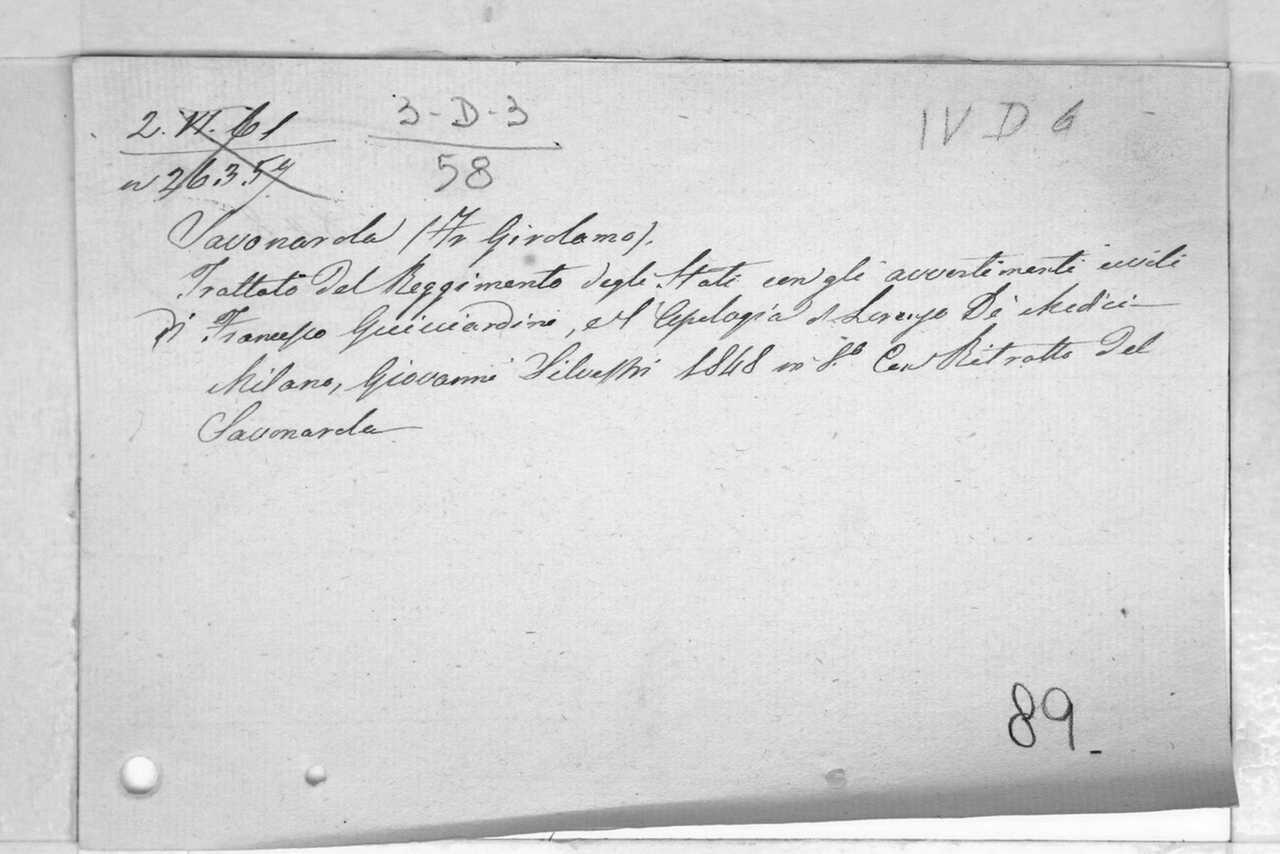 2. VI. 61
3-D-3
IV D 6
n 263.57
58
Savonarola (Fr Girolamo).
Trattato del Reggimento degli Stati con gli avvertimenti civili
di Francesco Guicciardini, e l'Apologia di Lorenzo De Medici
Milano, Giovanni Silvestri 1848 in 8.º Con Ritratto del
Savonarola
89